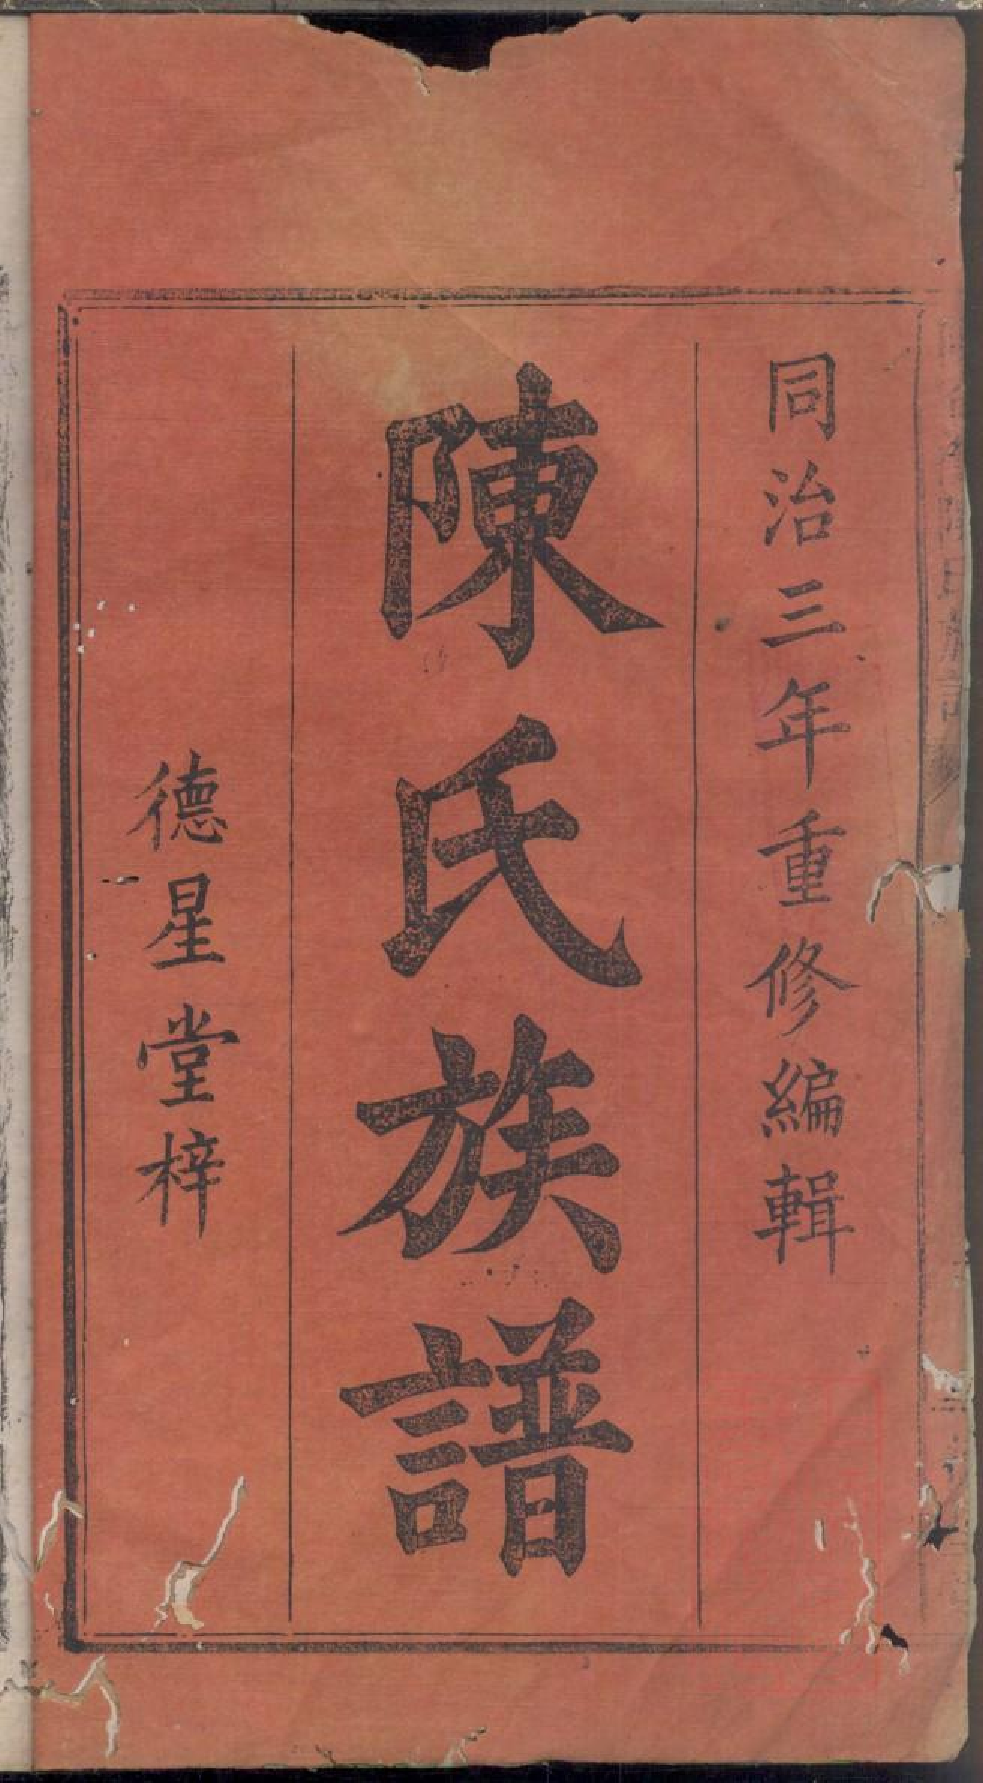 同治三年重修編輯
陳氏族譜
德星堂梓